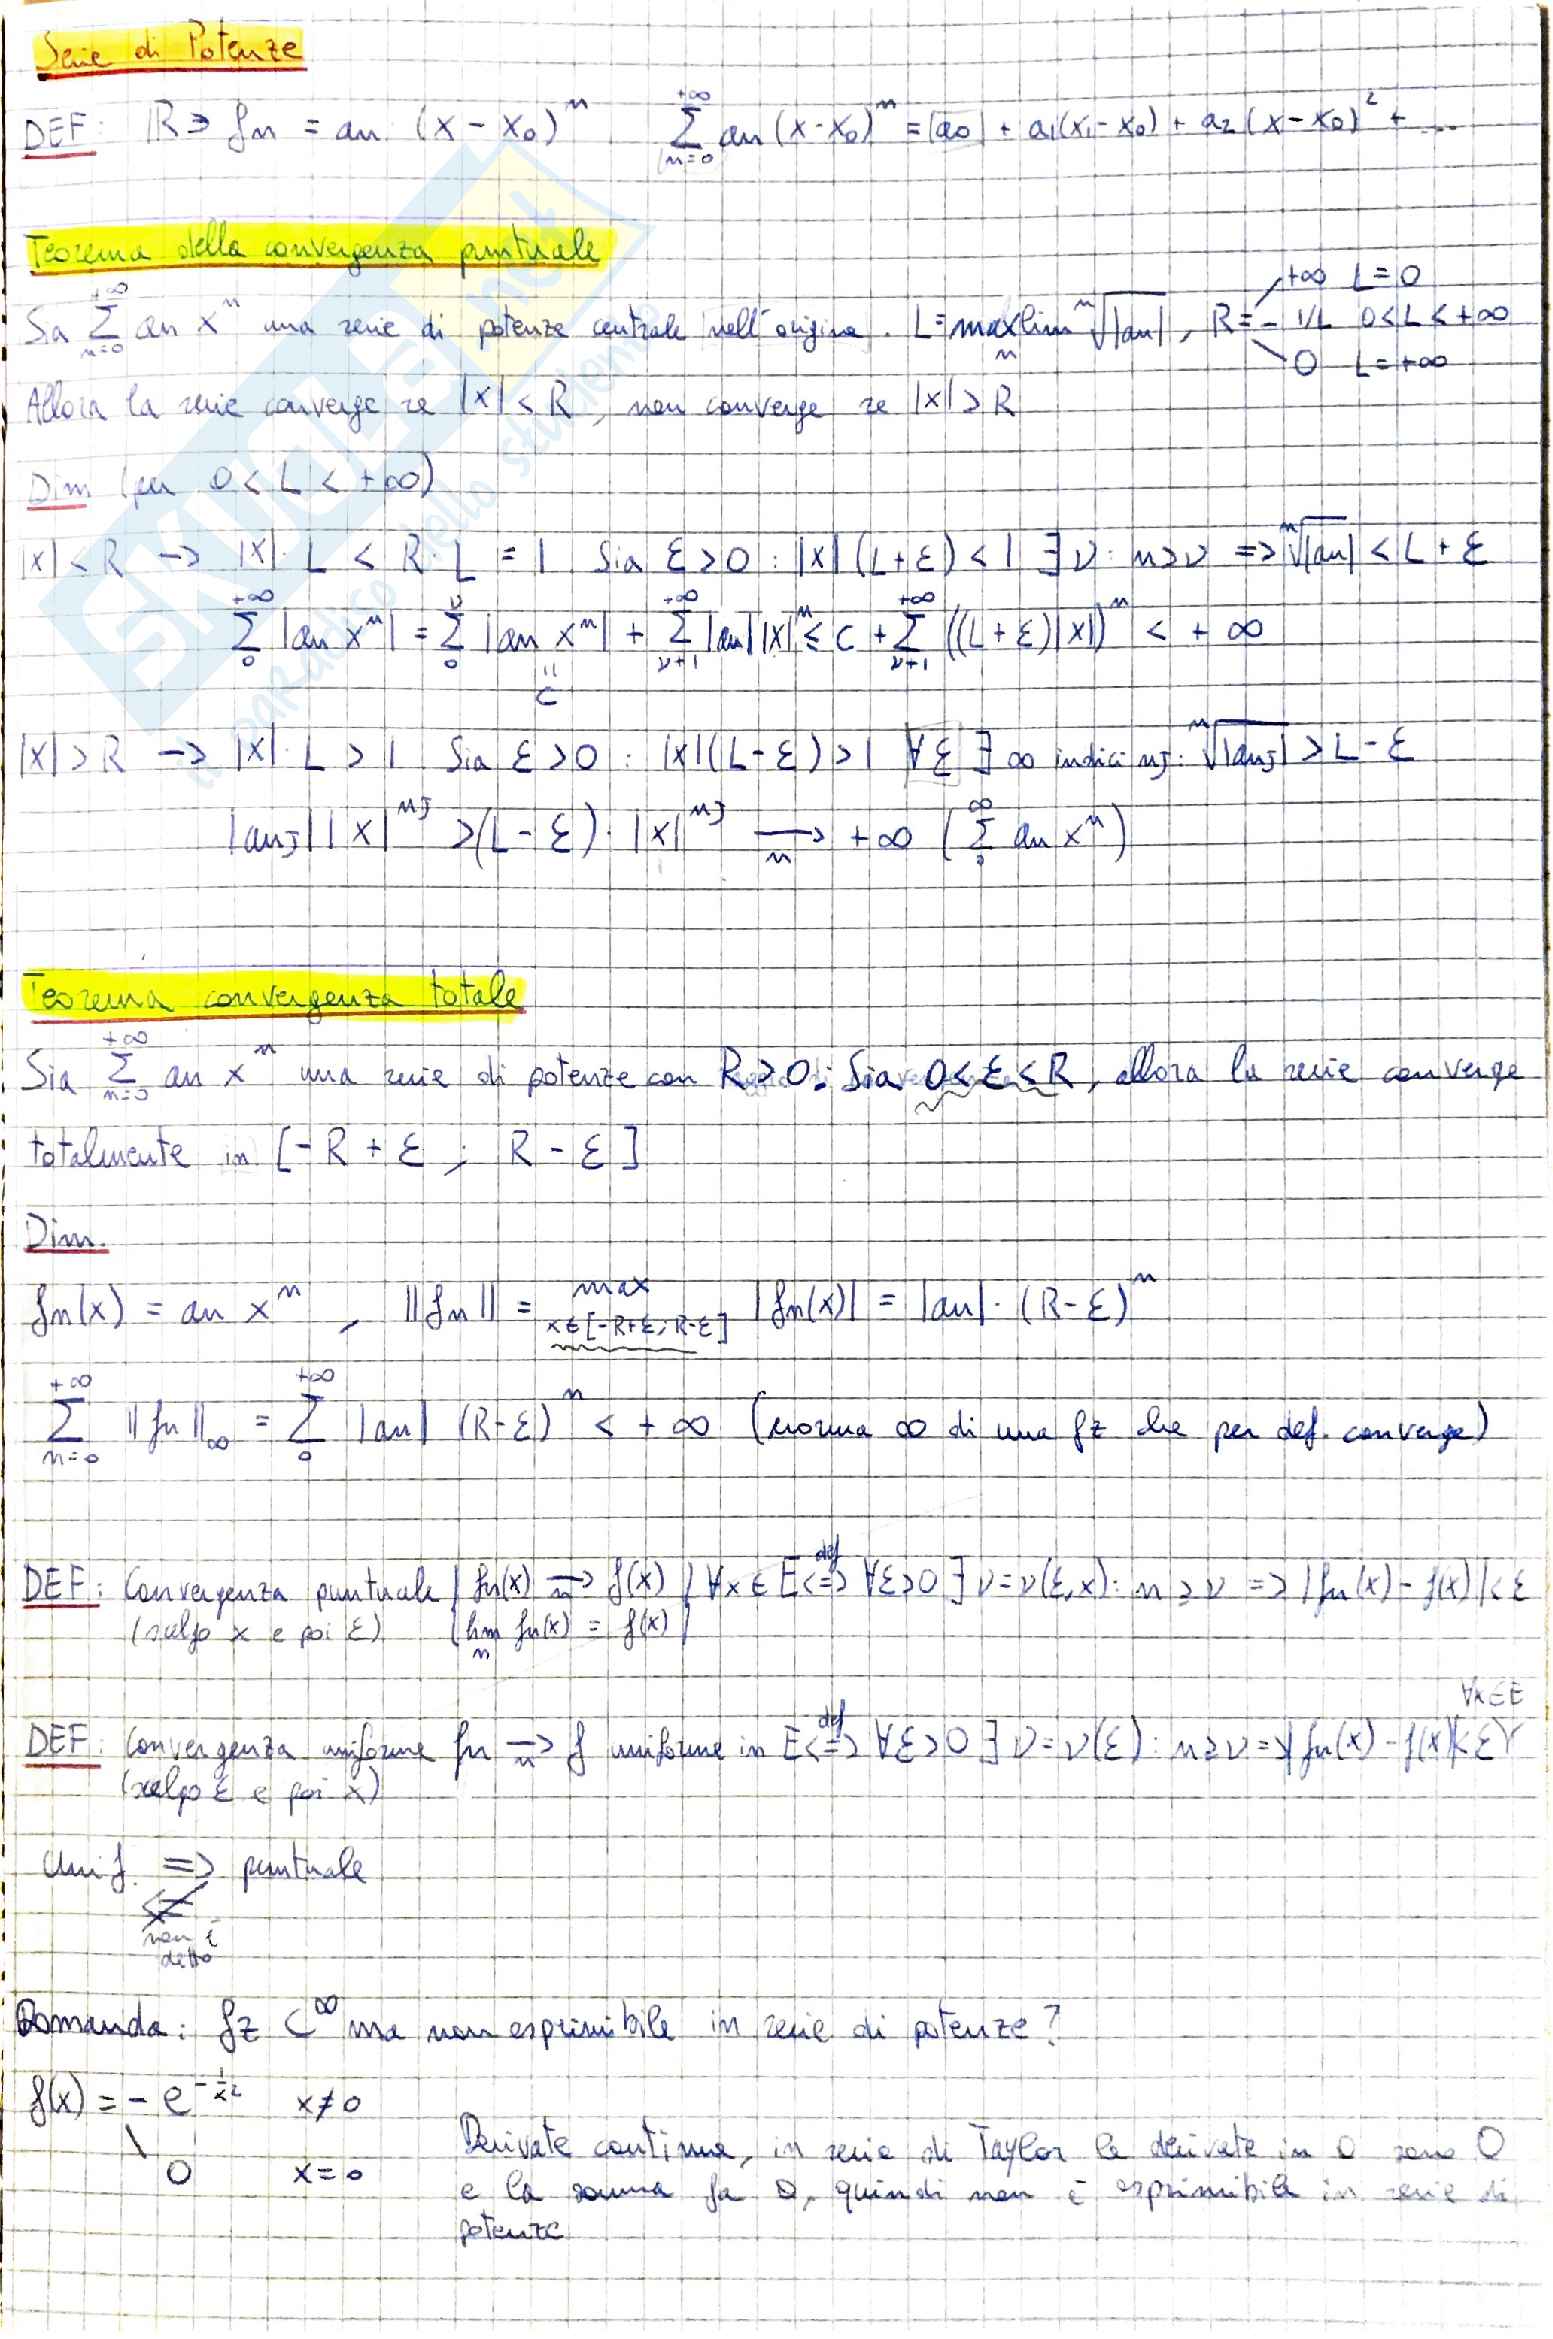 Serie di Potenze
DEF: ℝ∋ fn = an (x - x₀)ⁿ   Σ_{n=0}^{+∞} an (x-x₀)ⁿ = |a₀| + a₁(x₁-x₀) + a₂(x-x₀)² + ...
Teorema della convergenza puntuale
Sia Σ_{n=0}^{+∞} an xⁿ una serie di potenze centrale nell'origine. L = maxlim_n ⁿ√|an| , R = +∞ L=0
- 1/L 0<L<+∞
0 L=+∞
Allora la serie converge se |x| < R, non converge se |x| > R
Dim (per 0 < L < +∞)
|x| < R → |x|· L < R·L = 1 Sia ε>0 : |x|(L+ε) < 1 ∃ν: n>ν => ⁿ√|an| < L+ε
Σ_0^{+∞} |an xⁿ| = Σ_0^ν |an xⁿ| + Σ_{ν+1}^{+∞} |an||x|ⁿ ≤ C + Σ_{ν+1}^{+∞} ((L+ε)|x|)ⁿ < +∞
=
C
|x| > R → |x|· L > 1 Sia ε>0 : |x|(L-ε) > 1 ∀ε ∃ ∞ indici nj: ⁿ√|anj| > L-ε
|anj||x|^{nj} > (L-ε)·|x|^{nj} →_n +∞ (Σ_0^∞ an xⁿ)
Teorema convergenza totale
Sia Σ_{n=0}^{+∞} an xⁿ una serie di potenze con R>0. Sia 0<ε<R, allora la serie converge
totalmente in [-R+ε ; R-ε]
Dim.
fn(x) = an xⁿ , ||fn|| = max_{x∈[-R+ε; R-ε]} |fn(x)| = |an|·(R-ε)ⁿ
Σ_{n=0}^{+∞} ||fn||_∞ = Σ_0^{+∞} |an| (R-ε)ⁿ < +∞ (norma ∞ di una fz che per def. converge)
DEF: Convergenza puntuale | fn(x) →_n f(x) | ∀x∈E <=>^{def} ∀ε>0 ∃ν=ν(ε,x): n≥ν => |fn(x) - f(x)|<ε
(scelgo x e poi ε) | lim_n fn(x) = f(x) |
∀x∈E
DEF: Convergenza uniforme fn →_n f uniforme in E <=>^{def} ∀ε>0 ∃ν=ν(ε): n≥ν => |fn(x) - f(x)|<ε
(scelgo ε e poi x)
Unif. => puntuale
<≠
non è
detto
Domanda: fz C^∞ ma non esprimibile in serie di potenze?
f(x) = - e^{-1/x²}   x≠0
\ 0   x=0
Derivate continue, in serie di Taylor le derivate in 0 sono 0
e la somma fa 0, quindi non è esprimibile in serie di
potenze
SKUOLA.net
il paradiso dello studente